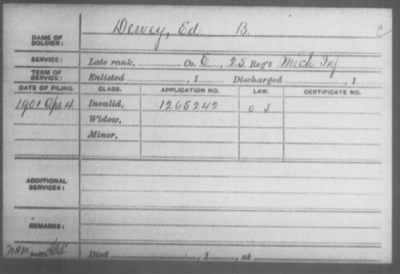 Dewey, Ed B.
NAME OF SOLDIER:
SERVICE: Late rank, Co. E, 25 Reg't Mich Inf
TERM OF SERVICE: Enlisted , 1 Discharged , 1
DATE OF FILING. CLASS. APPLICATION NO. LAW. CERTIFICATE NO.
1901 Apr 4 Invalid, 1265242
Widow,
Minor,
ADDITIONAL SERVICES:
REMARKS:
Died , 1 , at